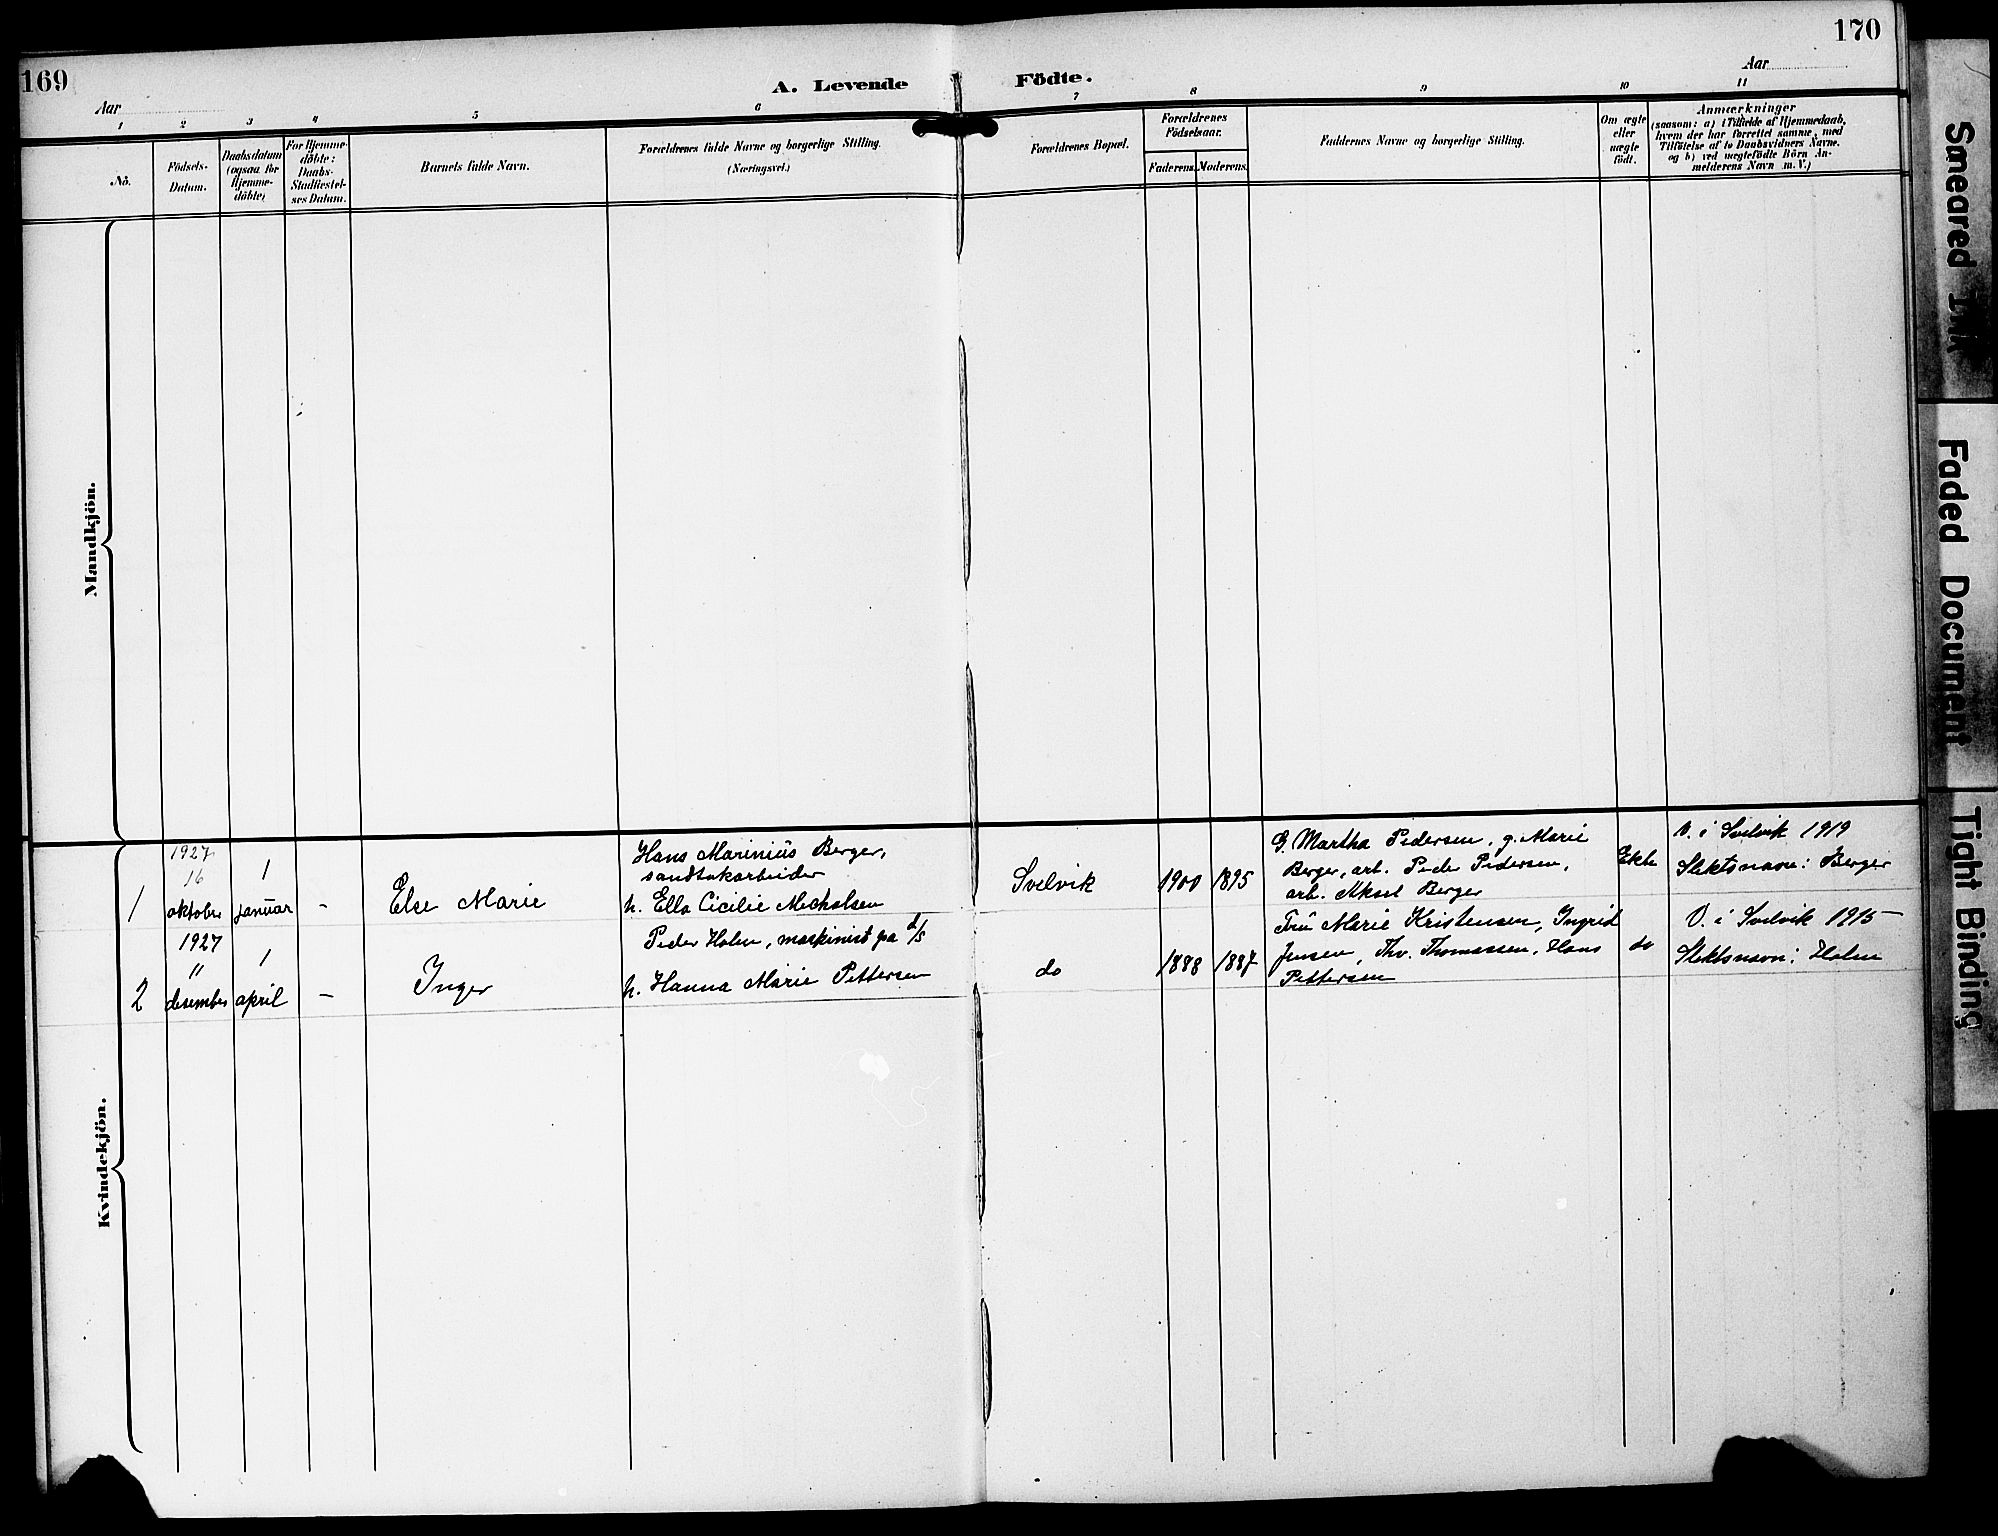 169
170
A. Levende Födte.
Aar
Aar
1 2 3 4 5 6 7 8 9 10 11
No.
Födsels-
Datum.
Daabsdatum
(ogsaa for
Hjemme-
döbte)
For Hjemme-
döbte:
Daabs-
Stadfæstel-
ses Datum.
Barnets fulde Navn.
Forældrenes fulde Navne og borgerlige Stilling.
(Næringsvei.)
Forældrenes Bopæl.
Forældrenes
Födselsaar.
Faderens.
Moderens.
Faddernes Navne og borgerlige Stilling.
Om ægte
eller
uægte
födt.
Anmærkninger
(saasom: a) i Tilfælde af Hjemmedaab,
hvem der har forrettet samme, med
Tilföielse af to Daabsvidners Navne.
og b) ved uægtefödte Börn An-
melderens Navn m. V.)
Mandkjön.
Kvindekjön.
1
1927
16
oktober
1
januar
-
Else Marie
Hans Marinius Berger,
sandtakarbeider
h. Ella Cicilie Michalsen
Svelvik
1900
1895
G. Martha Pedersen, g. Marie
Berger, arb. Peder Pedersen,
arb. Aksel Berger
Ekte
V. i Svelvik 1919
Slektsnavn: Berger
2
1927
11
desember
1
april
-
Inger
Peder Holm, maskinist pa d/s
h. Hanna Marie Pettersen
do
1888
1887
Fru Marie Kristensen, Ingrid
Jensen, Thv. Thomassen, Hans
Pettersen
do
V. i Svelvik 1915
Slektsnavn: Holm
Smeared Ink
Faded Document
Tight Binding